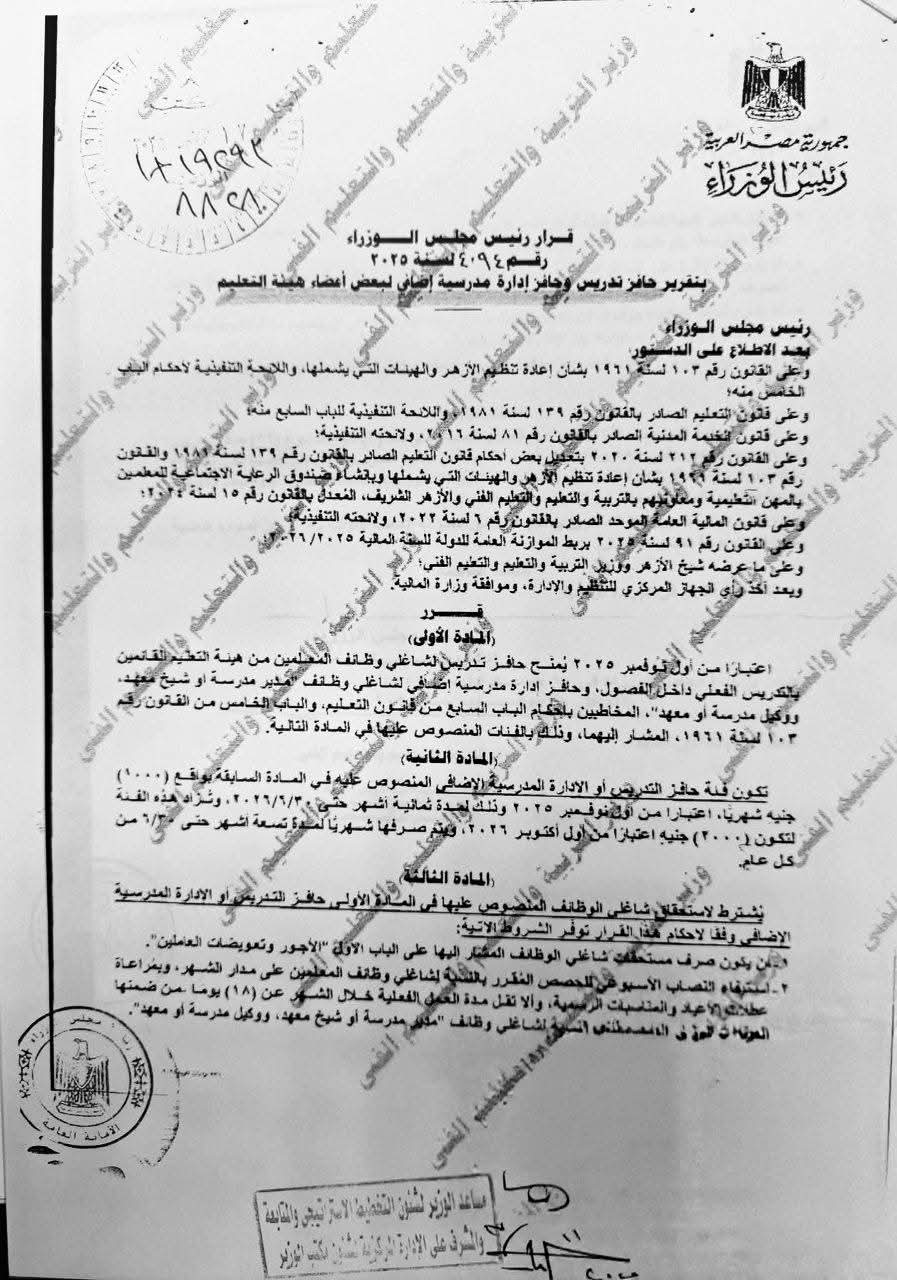 جمهورية مصر العربية
رئيس الوزراء
قرار رئيس مجلس الـــوزراء
رقم ٤٠٩٤ لسنة ٢٠٢٥
بتقرير حافز تدريس وحافز إدارة مدرسية إضافي لبعض أعضاء هيئة التعليم
رئيس مجلس الوزراء
بعد الاطلاع على الدستور؛
وعلى القانون رقم ١٠٣ لسنة ١٩٦١ بشأن إعادة تنظيم الأزهر والهيئات التي يشملها، واللائحة التنفيذية لأحكام الباب
الخامس منه؛
وعلى قانون التعليم الصادر بالقانون رقم ١٣٩ لسنة ١٩٨١، واللائحة التنفيذية للباب السابع منه؛
وعلى قانون الخدمة المدنية الصادر بالقانون رقم ٨١ لسنة ٢٠١٦، ولائحته التنفيذية؛
وعلى القانون رقم ٢١٢ لسنة ٢٠٢٠ بتعديل بعض أحكام قانون التعليم الصادر بالقانون رقم ١٣٩ لسنة ١٩٨١ والقانون
رقم ١٠٣ لسنة ١٩٦١ بشأن إعادة تنظيم الأزهر والهيئات التي يشملها وبإنشاء صندوق الرعاية الاجتماعية للمعلمين
بالمهن التعليمية ومعاونيهم بالتربية والتعليم والتعليم الفني والأزهر الشريف، المُعدل بالقانون رقم ١٥ لسنة ٢٠٢٤؛
وعلى قانون المالية العامة الموحد الصادر بالقانون رقم ٦ لسنة ٢٠٢٢، ولائحته التنفيذية؛
وعلى القانون رقم ٩١ لسنة ٢٠٢٥ بربط الموازنة العامة للدولة للسنة المالية ٢٠٢٦/٢٠٢٥؛
وعلى ما عرضه شيخ الأزهر ووزير التربية والتعليم والتعليم الفني؛
وبعد أخذ رأي الجهاز المركزي للتنظيم والإدارة، وموافقة وزارة المالية.
قـــرر
(المادة الأولى)
اعتبارًا من أول نوفمبر ٢٠٢٥ يُمنح حافز تدريس لشاغلي وظائف المعلمين من هيئة التعليم القائمين
بالتدريس الفعلي داخل الفصول، وحافز إدارة مدرسية إضافي لشاغلي وظائف "مدير مدرسة أو شيخ معهد،
ووكيل مدرسة أو معهد"، المخاطبين بأحكام الباب السابع من قانون التعليم، والباب الخامس من القانون رقم
١٠٣ لسنة ١٩٦١، المشار إليهما، وذلك بالفئات المنصوص عليها في المادة التالية.
(المادة الثانية)
تكون فئة حافز التدريس أو الادارة المدرسية الإضافى المنصوص عليه في المادة السابقة بواقع (١٠٠٠)
جنيه شهريًا، اعتبارًا من أول نوفمبر ٢٠٢٥ وذلك لمدة ثمانية أشهر حتى ٢٠٢٦/٦/٣٠، وتُزاد هذه الفئة
لتكون (٢٠٠٠) جنيه اعتبارًا من أول أكتوبر ٢٠٢٦، ويتم صرفها شهريًا لمدة تسعة أشهر حتى ٦/٣٠ من
كل عام.
(المادة الثالثة)
يُشترط لاستحقاق شاغلي الوظائف المنصوص عليها في المادة الأولى حافز التدريس أو الادارة المدرسية
الإضافى وفقًا لأحكام هذا القرار توفر الشروط الآتية:
١- أن يكون صرف مستحقات شاغلي الوظائف المشار إليها على الباب الأول "الأجور وتعويضات العاملين".
٢- استيفاء النصاب الأسبوعي للحصص المقرر بالنسبة لشاغلي وظائف المعلمين على مدار الشهر، وبمراعاة
عطلات الأعياد والمناسبات الرسمية، وألا تقل مدة العمل الفعلية خلال الشهر عن (١٨) يومًا من ضمنها
لشاغلي وظائف "مدير مدرسة أو شيخ معهد، ووكيل مدرسة أو معهد".
مجلس
الأمانة العامة
مساعد الوزير لشئون التخطيط الاستراتيجي والمتابعة
والمشرف على الإدارة المركزية لشئون مكتب الوزير
وزير التربية والتعليم والتعليم الفني